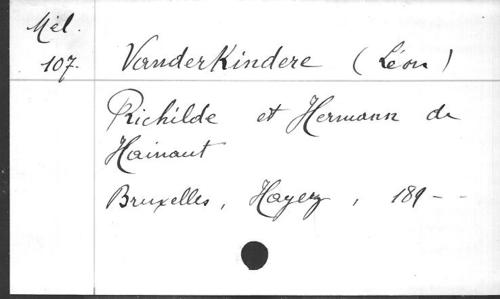 Mél.
107.
VanderKindere (Léon)
Richilde et Hermann de
Hainaut
Bruxelles, Hayez, 189--